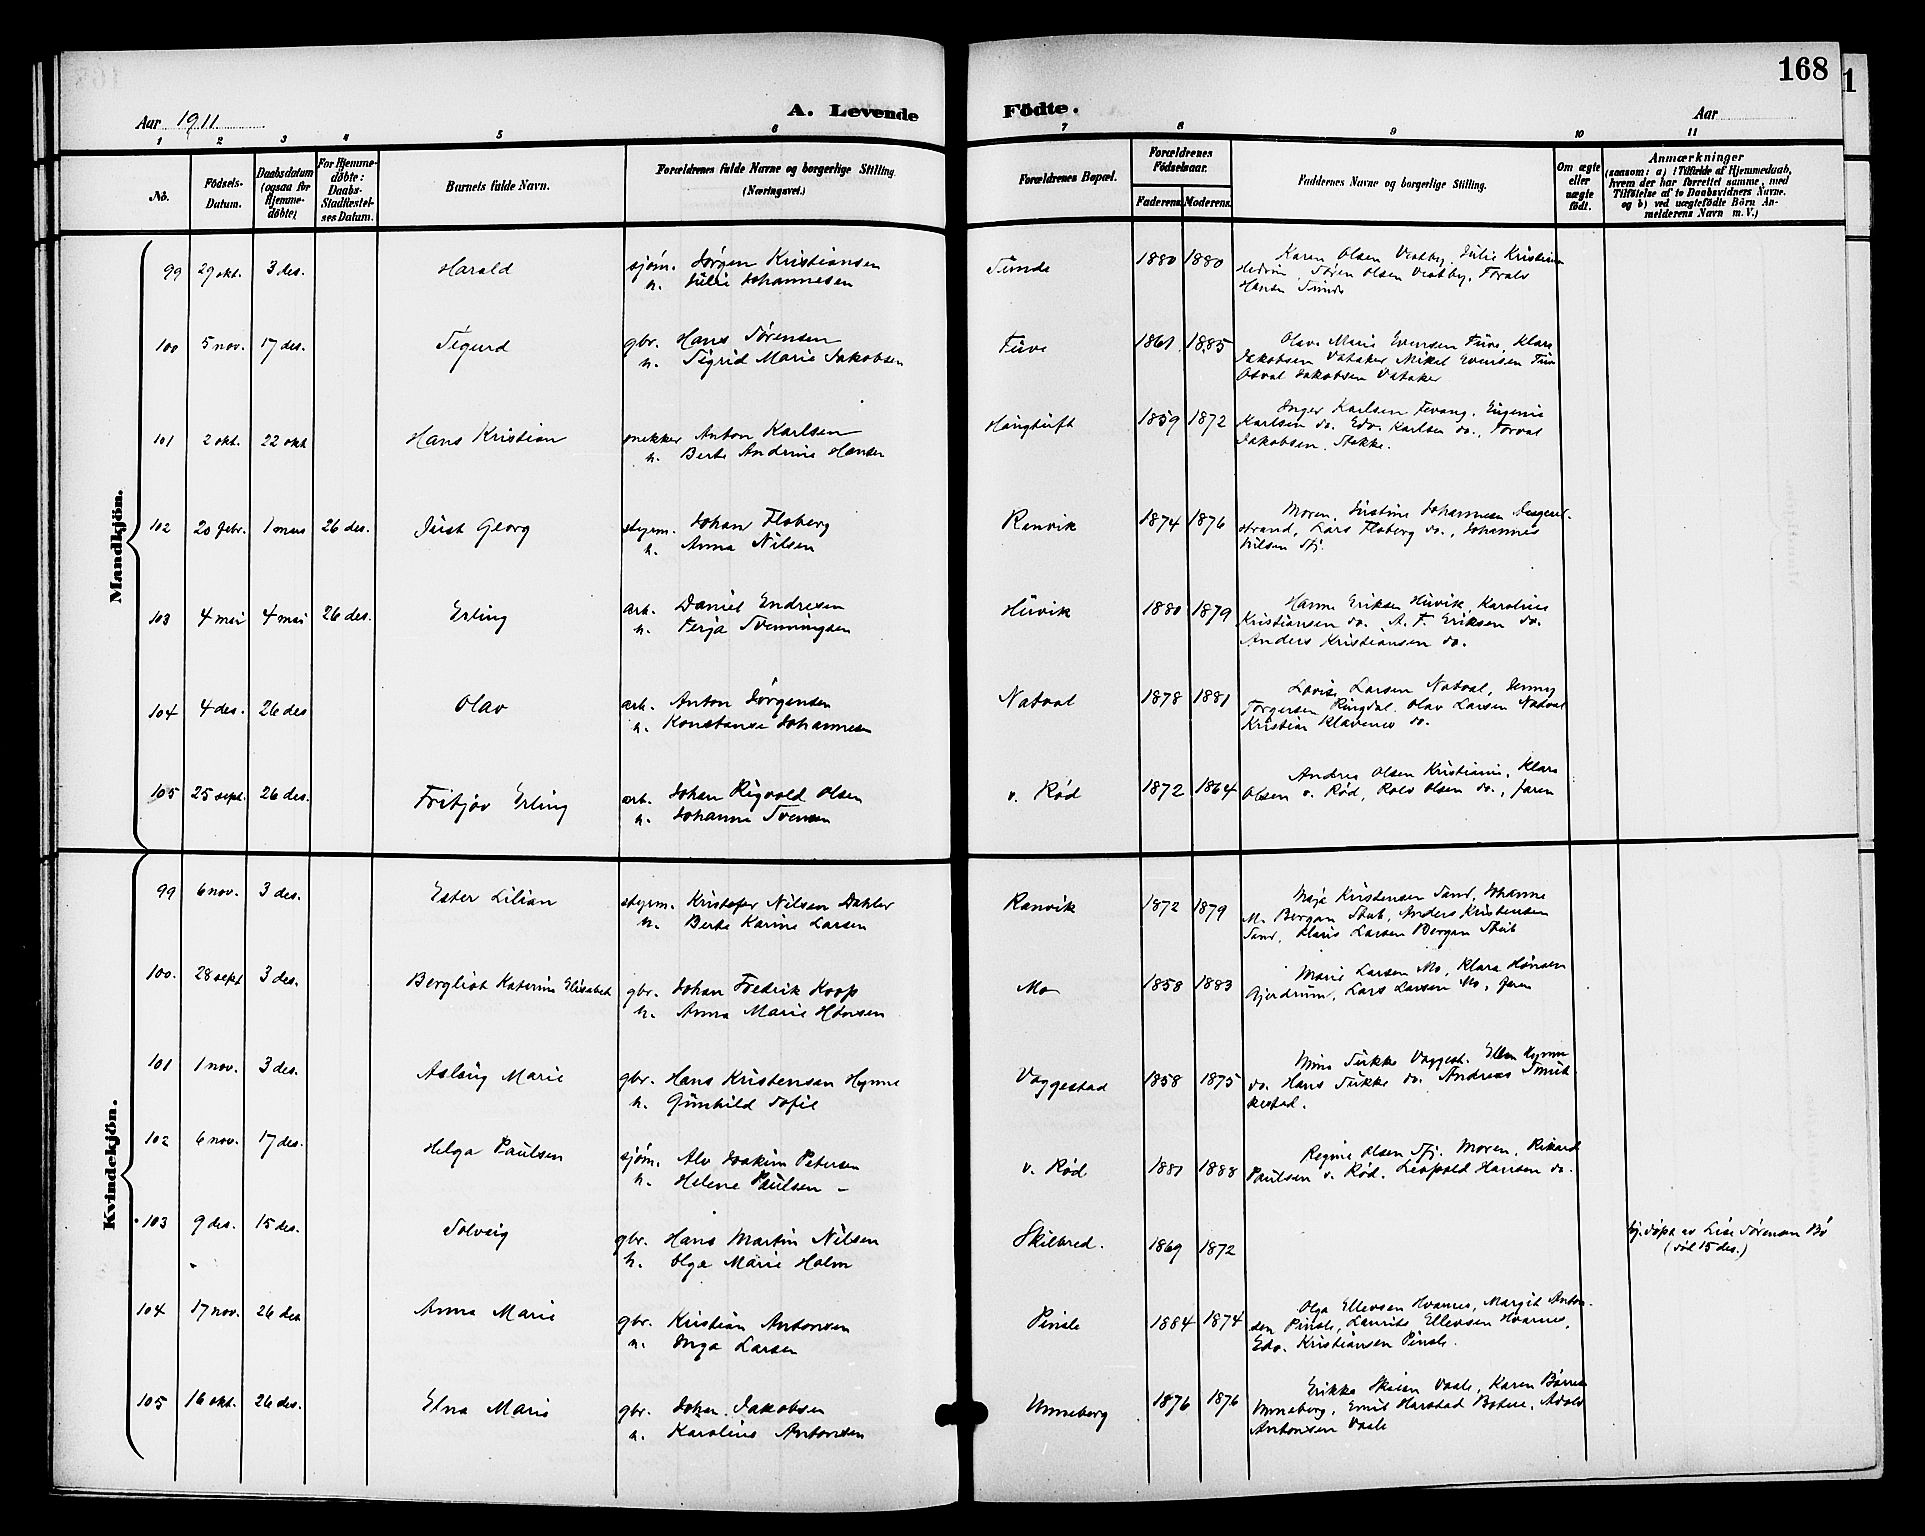 168
Aar 1911
A. Levende Födte.
Aar
1 2 3 4 5 6 7 8 9 10 11
No.
Födsels-Datum.
Daabsdatum (ogsaa for Hjemmedöbte)
For Hjemmedöbte: Daabs-Stadfæstelses Datum.
Barnets fulde Navn.
Forældrenes fulde Navne og borgerlige Stilling. (Næringsvei.)
Forældrenes Bopæl.
Forældrenes Födselsaar.
Faderens. Moderens.
Faddernes Navne og borgerlige Stilling.
Om ægte eller uægte födt.
Anmærkninger
(saasom: a) i Tilfælde af Hjemmedaab, hvem der har forrettet samme, med Tilföielse af to Daabsvidners Navne, og b) ved uægtefödte Börn Anmelderens Navn m. V.)
Mandkjön.
99 29 okt. 3 des. Harald sjøm. Jørgen Kristiansen 1880 1880 Karen Olsen Vestby, Julie Kristiansen
h. Julie Johannesen Søren Olsen Vestby, Torals
Hansen Sunde
100 5 nov. 17 des. Sigurd gbr. Hans Sørensen Tuve 1861 1885 Olava Marie Evensen Tuve, Klara
h. Sigrid Marie Jakobsen Jakobsen Vataker Mikal Evensen Tuve
Osval Jakobsen Vataker
101 2 okt. 22 okt Hans Kristian snekker Anton Karlsen Haugtuft 1859 1872 Inger Karlsen Fevang, Eugenie
h. Berte Andrine Hansen Karlsen do. Edv. Karlsen do., Torval
Jakobsen, Stokke.
102 20 febr. 1 mars 26 des. Just Georg styrm. Johan Floberg Ranvik 1874 1876 Moren, Justine Johannesen
h. Anna Nilsen strand, Lars Floberg do., Johannes
Nilsen Sfj.
103 4 mai 4 mai 26 des. Erling arb. Daniel Endresen Huvik 1880 1879 Hanna Eriksen Huvik, Karoline
h. Terja Svenningsen Kristiansen do. A. F. Eriksen do.
Anders Kristiansen do.
104 4 des. 26 des Olav arb. Anton Jørgensen Natval 1878 1881 Lovise Larsen Natval, Jenny
h. Konstanse Johannesen Torgersen Ringdal. Olav Larsen Natval
Kristian Klavenes do.
105 25 sept. 26 des. Fritjov Erling arb. Johan Rigvald Olsen v. Rød 1872 1864 Andrea Olsen Kristiania, Klara
h. Johanne Svensen Olsen v. Rød, Rolv Olsen do., faren
Kvindekjön.
99 6 nov. 3 des. Ester Lilian styrm. Kristofer Nilsen Dahler Ranvik 1872 1879 Maja Kristensen Sand, Johanne
h. Berte Karine Larsen M. Bergan Stub, Anders Kristensen
Sand, Klaus Larsen Bergan Stub
100. 28 sept 3 des. Bergliot Katrine Elisabet gbr. Johan Fredrik Koop Mo 1858 1883 Marie Larsen Mo, Klara Hansen
h. Anna Marie Hansen Gjerdrum, Lars Larsen Mo, faren
101 1 nov. 3 des. Aslaug Marie gbr. Hans Kristensen Hynne Vaggestad 1858 1875 Mina Sukke Vaggest. Ellen Hynne
h. Gunhild Sofie do. Hans Sukke do. Andreas
102 6 nov. 17 des. Helga Paulsen sjøm. Alv Joakim Petersen v. Rød 1881 1888 Regine Olsen Sfj. Moren. Rikard
h. Helene Paulsen – Paulsen v. Rød. Leopold Hansen do.
103 9 des. 15 des. Solveig gbr. Hans Martin Nilsen Skilbred. 1869 1872 hj. døpt av Lise Sørensen Bø
h. Olga Marie Holm (død 15 des.)
104 17 nov. 26 des Anna Marie gbr. Kristian Antonsen Pinsle 1884 1874 Olga Ellevsen Hvarnes, Margit Anton-
h. Inga Larsen sen Pinsle, Laurits Ellevsen Hvarnes,
Edv. Kristiansen Pinsle.
105 16 okt. 26 des. Elna Marie gbr. Johan Jakobsen Unneberg 1876 1876 Erikka Skaien Vaale, Karen
h. Karoline Antonsen Unneberg, Emil Harstad Botne,
Antonsen Vaale